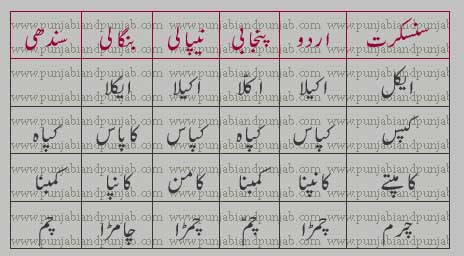 سنسکرت اردو پنجابی نیپالی بنگالی سندھی
ایکل اکیلا اکلّا اکیلا ایکلا
کپس کپاس کپاہ کپاس کاپاس کپاہ
کامپتے کانپنا کمبنا کامن کانپا کمبنا
چرم چمڑا چمّ چمڑا چامڑا چم
www.punjabiandpunjab.com